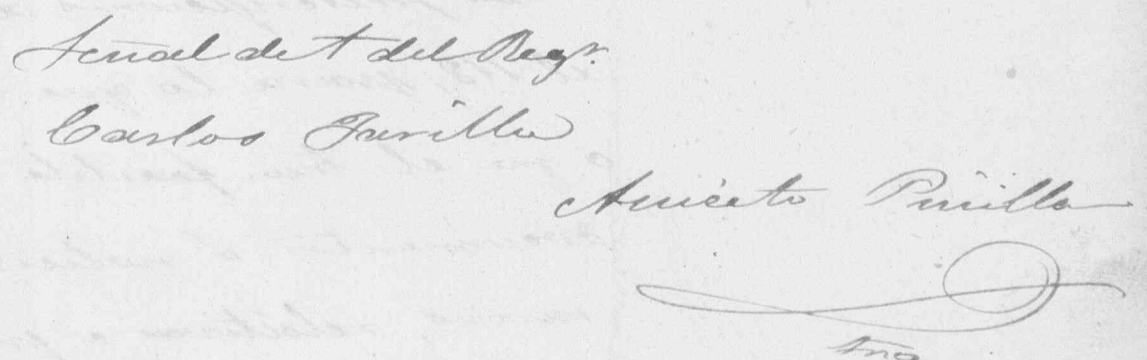 Señal de † del Regr.
Carlos Pinilla
Aniceto Pinilla